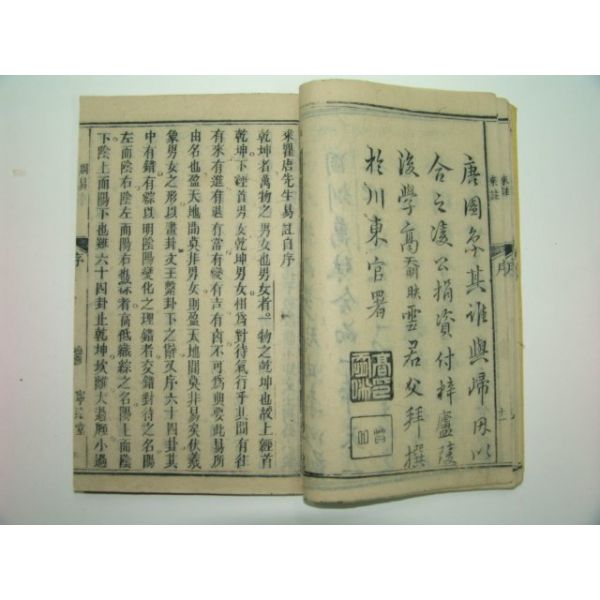 唐圖象其誰與歸因以
合之凌公捐資付梓廬陵
後學高奣映雲君父拜撰
於川東官署
來註
序
來瞿唐先生易註自序
乾坤者萬物之男女也男女者一物之乾坤也故上經首
乾坤下經首男女乾坤男女相為對待氣行乎其間有往
有來有進有退有常有變有吉有凶不可為典要此易所
由名也盈天地間莫非男女則盈天地間莫非易矣伏羲
象男女之形以畫卦文王繫卦下之辭又序六十四卦其
中有錯有綜以明陰陽變化之理錯者交錯對待之名陽
左而陰右陰左而陽右也綜者高低織綜之名陽上而陰
下陰上而陽下也雖六十四卦止乾坤坎離大過頤小過
序
堂